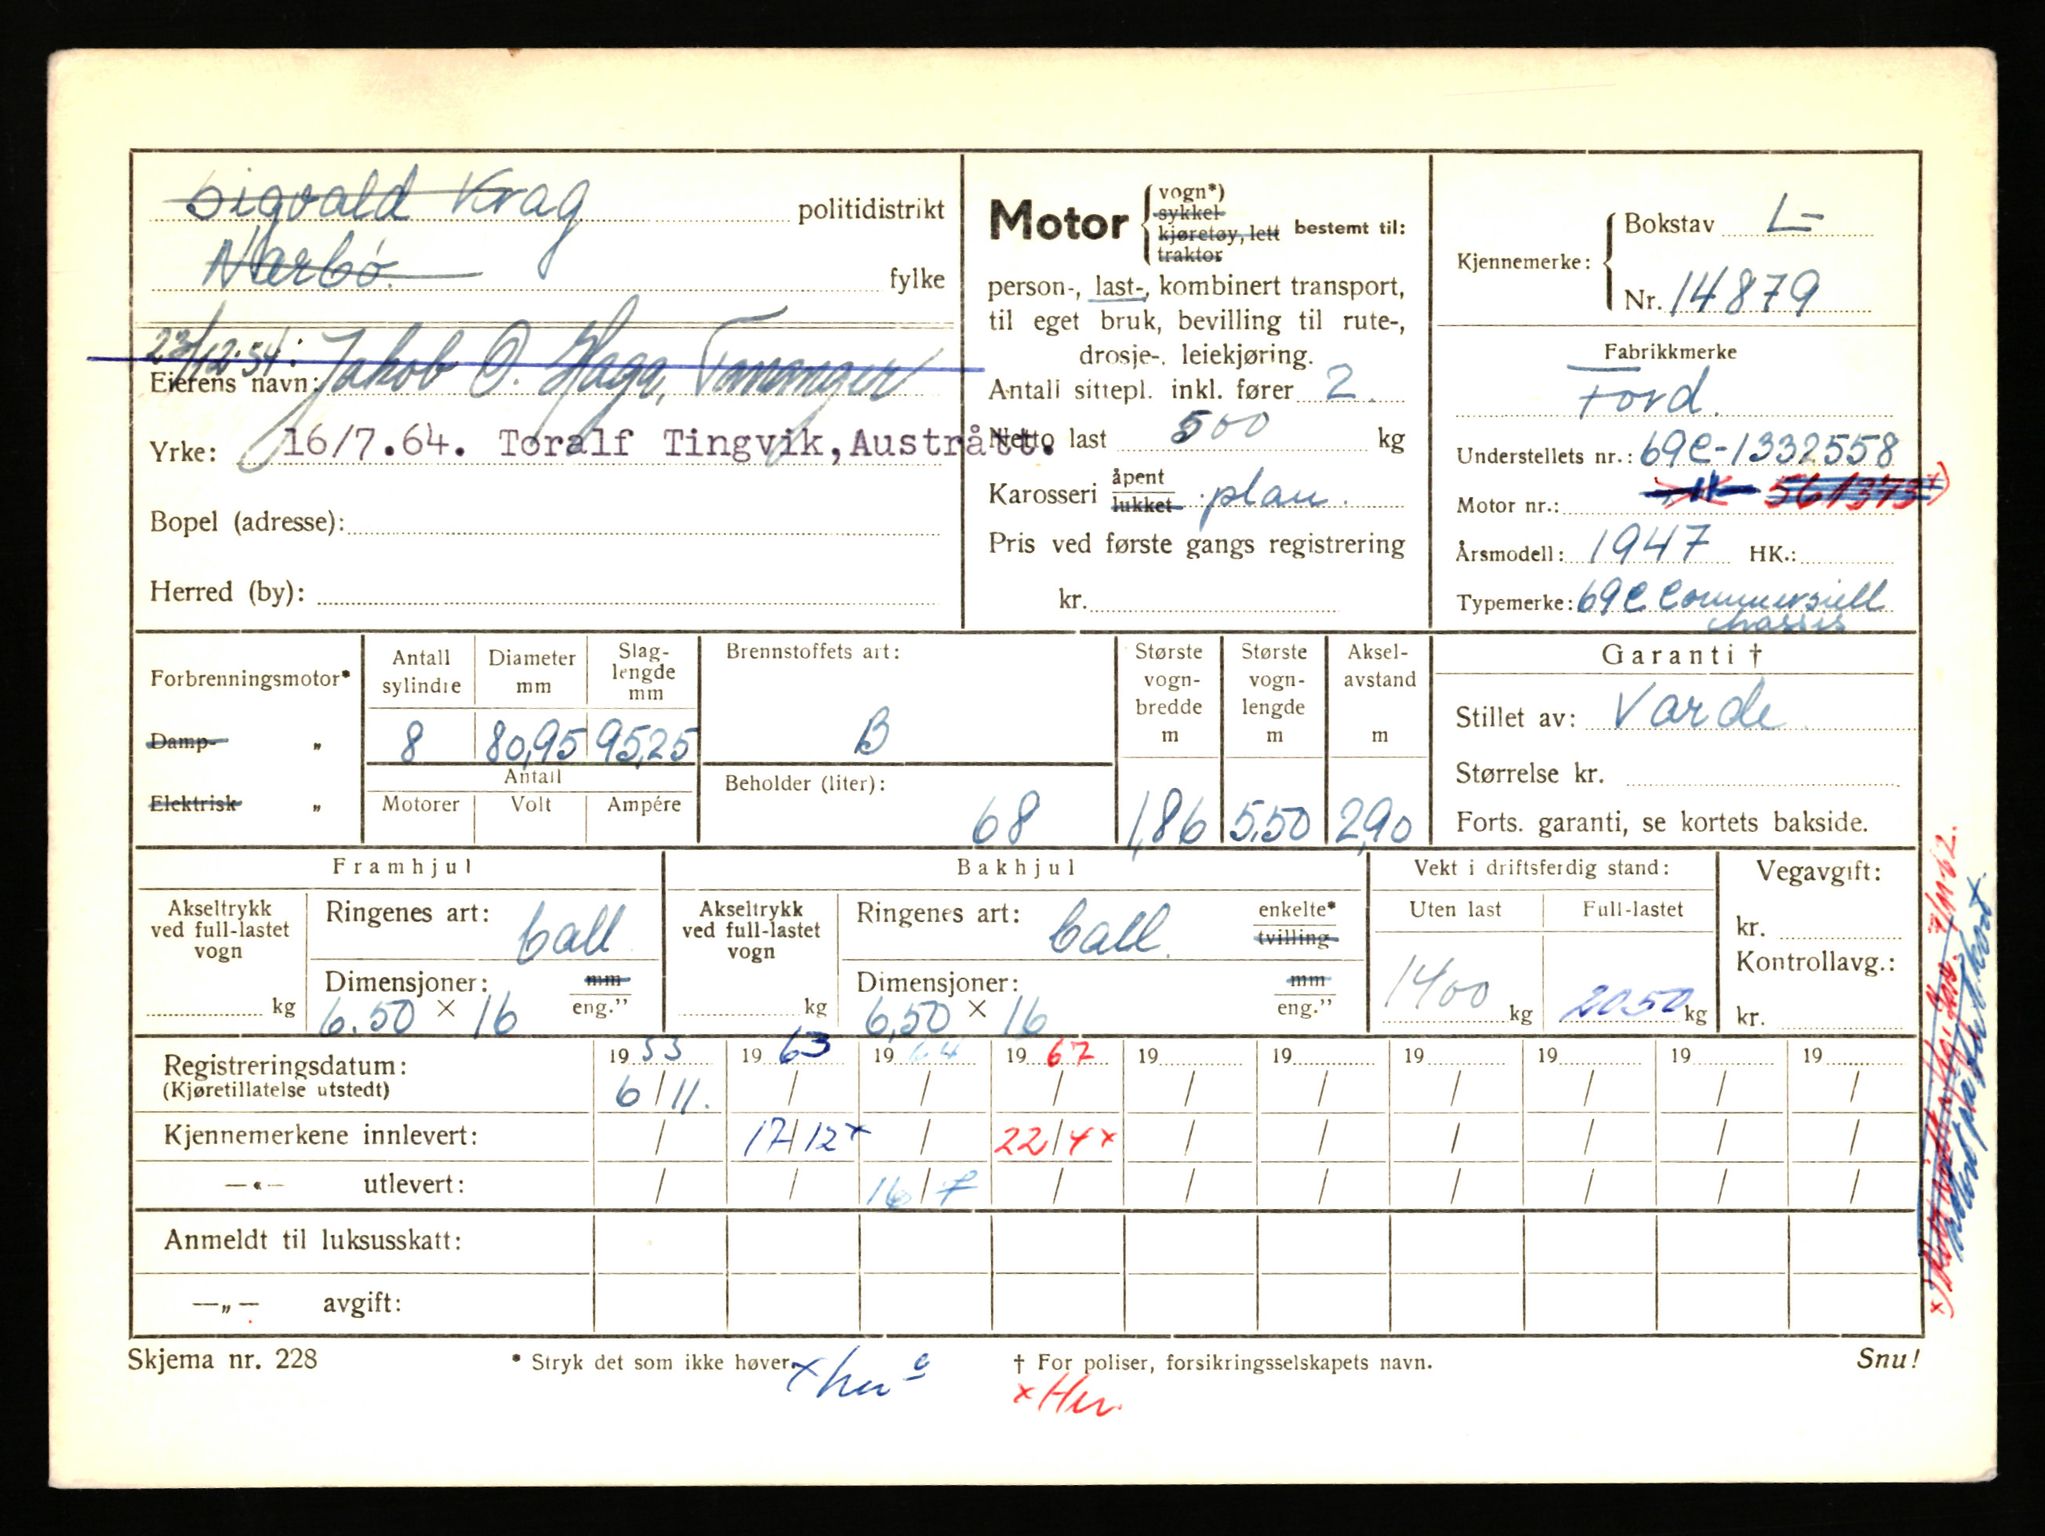 Sigvald Krag politidistrikt
Nærbø. fylke
23/12.54: Jakob O. Haga, Tananger
Eierens navn:
Yrke: 16/7.64. Toralf Tingvik, Austrått.
Bopel (adresse):
Herred (by):
Motor { vogn*) sykkel kjøretøy, lett traktor bestemt til:
person-, last-, kombinert transport,
til eget bruk, bevilling til rute-,
drosje-, leiekjøring.
Antall sittepl. inkl. fører 2.
Netto last 500 kg
Karosseri åpent lukket plan.
Pris ved første gangs registrering
kr.
Kjennemerke: { Bokstav L-
Nr. 14879
Fabrikkmerke
Ford.
Understellets nr.: 69C-1332558
Motor nr.: 561373 x)
Årsmodell: 1947 HK.:
Typemerke: 69C Commersiell
chassis
Forbrenningsmotor*
Damp- „
Elektrisk „
Antall sylindre 8
Diameter mm 80,95
Slaglengde mm 95,25
Antall
Motorer Volt Ampére
Brennstoffets art:
B
Beholder (liter):
68
Største vognbredde m 1,86
Største vognlengde m 5,50
Akselavstand m 2,90
Garanti †
Stillet av: Varde
Størrelse kr.
Forts. garanti, se kortets bakside.
Framhjul
Akseltrykk ved full-lastet vogn kg
Ringenes art: ball
Dimensjoner: mm
6.50 × 16 eng.”
Bakhjul
Akseltrykk ved full-lastet vogn kg
Ringenes art: ball enkelte* tvilling
Dimensjoner: mm
6,50 × 16 eng.”
Vekt i driftsferdig stand:
Uten last Full-lastet
1400 kg 2050 kg
Vegavgift:
kr.
Kontrollavg.:
kr.
Registreringsdatum: 1953 1963 1964 1967 19 19 19 19 19 19
(Kjøretillatelse utstedt) 6/11. / / / / / / / / /
Kjennemerkene innlevert: / 17/12x / 22/4x / / / / / /
—«— utlevert: / / 16/7 / / / / / / /
Anmeldt til luksusskatt:
—„— avgift:
Skjema nr. 228 * Stryk det som ikke høver. † For poliser, forsikringsselskapets navn. Snu!